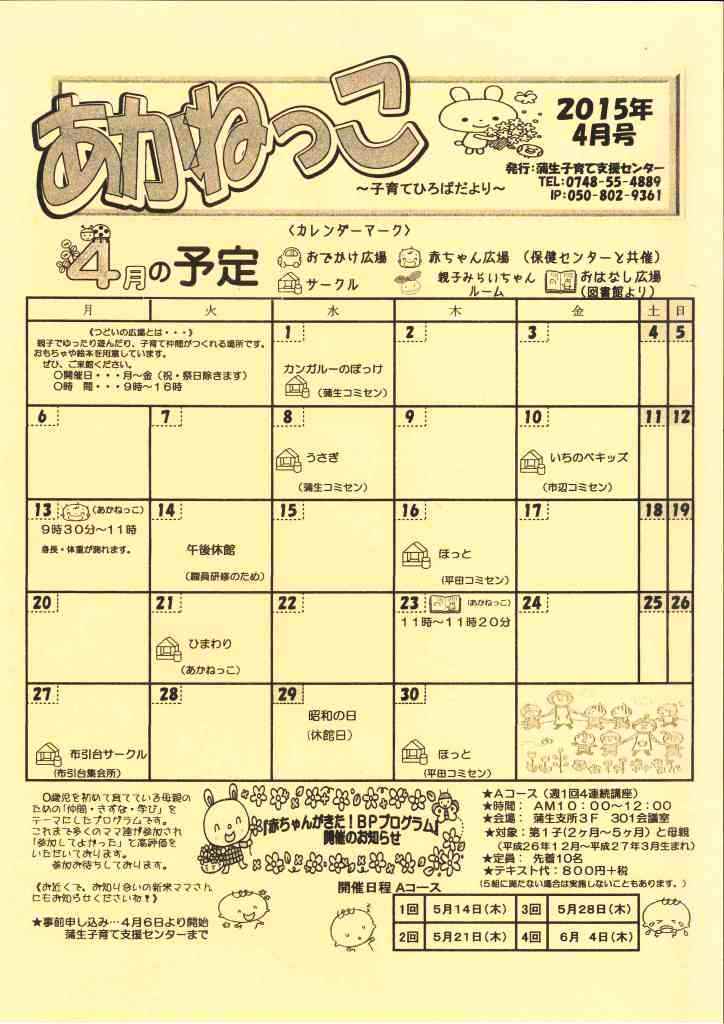 あかねっこ
～子育てひろばだより～
2015年
4月号
発行：蒲生子育て支援センター
TEL：0748-55-4889
IP：050-802-9361
4月の予定
〈カレンダーマーク〉
おでかけ広場
赤ちゃん広場 （保健センターと共催）
サークル
親子みらいちゃん
ルーム
おはなし広場
（図書館より）
月 火 水 木 金 土 日
《つどいの広場とは・・・》
親子でゆったり遊んだり、子育て仲間がつくれる場所です。
おもちゃや絵本を用意しています。
ぜひ、ご来館ください。
〇開催日・・・月～金（祝・祭日除きます）
〇時　間・・・9時～16時
1
カンガルーのぽっけ
（蒲生コミセン）
2
3
4
5
6
7
8
うさぎ
（蒲生コミセン）
9
10
いちのべキッズ
（市辺コミセン）
11
12
13
（あかねっこ）
9時30分～11時
身長・体重が測れます。
14
午後休館
（職員研修のため）
15
16
ほっと
（平田コミセン）
17
18
19
20
21
ひまわり
（あかねっこ）
22
23
（あかねっこ）
11時～11時20分
24
25
26
27
布引台サークル
（布引台集会所）
28
29
昭和の日
（休館日）
30
ほっと
（平田コミセン）
0歳児を初めて育てている母親の
ための「仲間・きずな・学び」を
テーマにしたプログラムです。
これまで多くのママ達が参加され
「参加してよかった」と高評価を
いただいております。
参加お待ちしております。
《お近くで、お知り合いの新米ママさん
にもお知らせくださいね！》
★事前申し込み…4月6日より開始
蒲生子育て支援センターまで
「赤ちゃんがきた！BPプログラム」
開催のお知らせ
★Aコース（週1回4連続講座）
★時間：　AM10：00～12：00
★会場：　蒲生支所3F　301会議室
★対象：第1子（2ヶ月～5ヶ月）と母親
（平成26年12月～平成27年3月生まれ）
★定員：　先着10名
★テキスト代：800円＋税
（5組に満たない場合は実施しないこともあります。）
開催日程 Aコース
1回 5月14日（木） 3回 5月28日（木）
2回 5月21日（木） 4回 6月 4日（木）